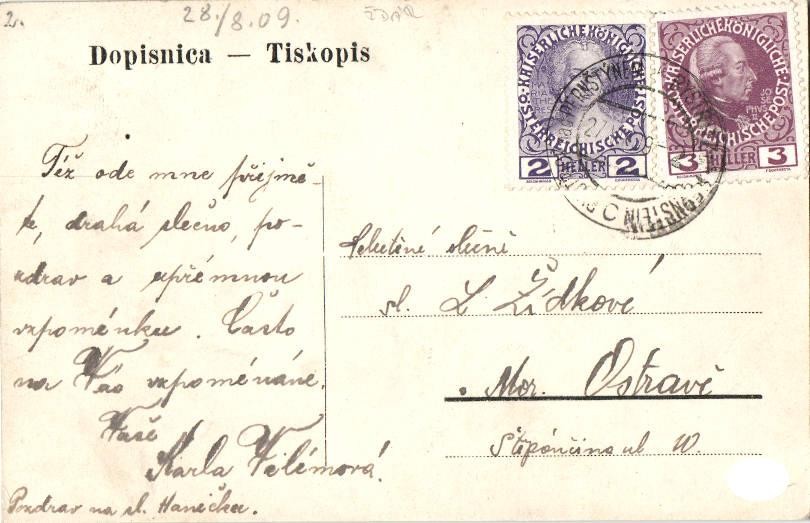 2.
28./8.09.
ŽDÁR
Dopisnica — Tiskopis
KAISERLICHE KÖNIGLICHE
ÖSTERREICHISCHE POST
2 HELLER 2
KAISERLICHE KÖNIGLICHE
ÖSTERREICHISCHE POST
3 HELLER 3
Též ode mne přijmě-
te, drahá slečno, po-
zdrav a upřímnou
vzpomínku. Často
na Vás vzpomínáme.
Vaše
Karla Vilémová.
Pozdrav na sl. Haničku.
slečně
sl. L. Žídkové
Mor. Ostravě
ul 10.